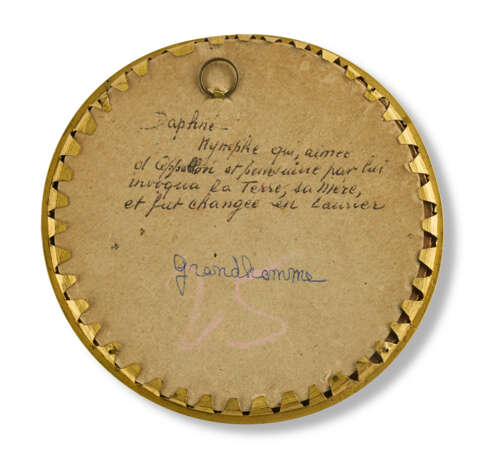 Daphné
Nymphe qui, aimée
d'Appollon et poursuivie par lui
invoqua la Terre, sa mère,
et fut changée en Laurier
Grandhomme